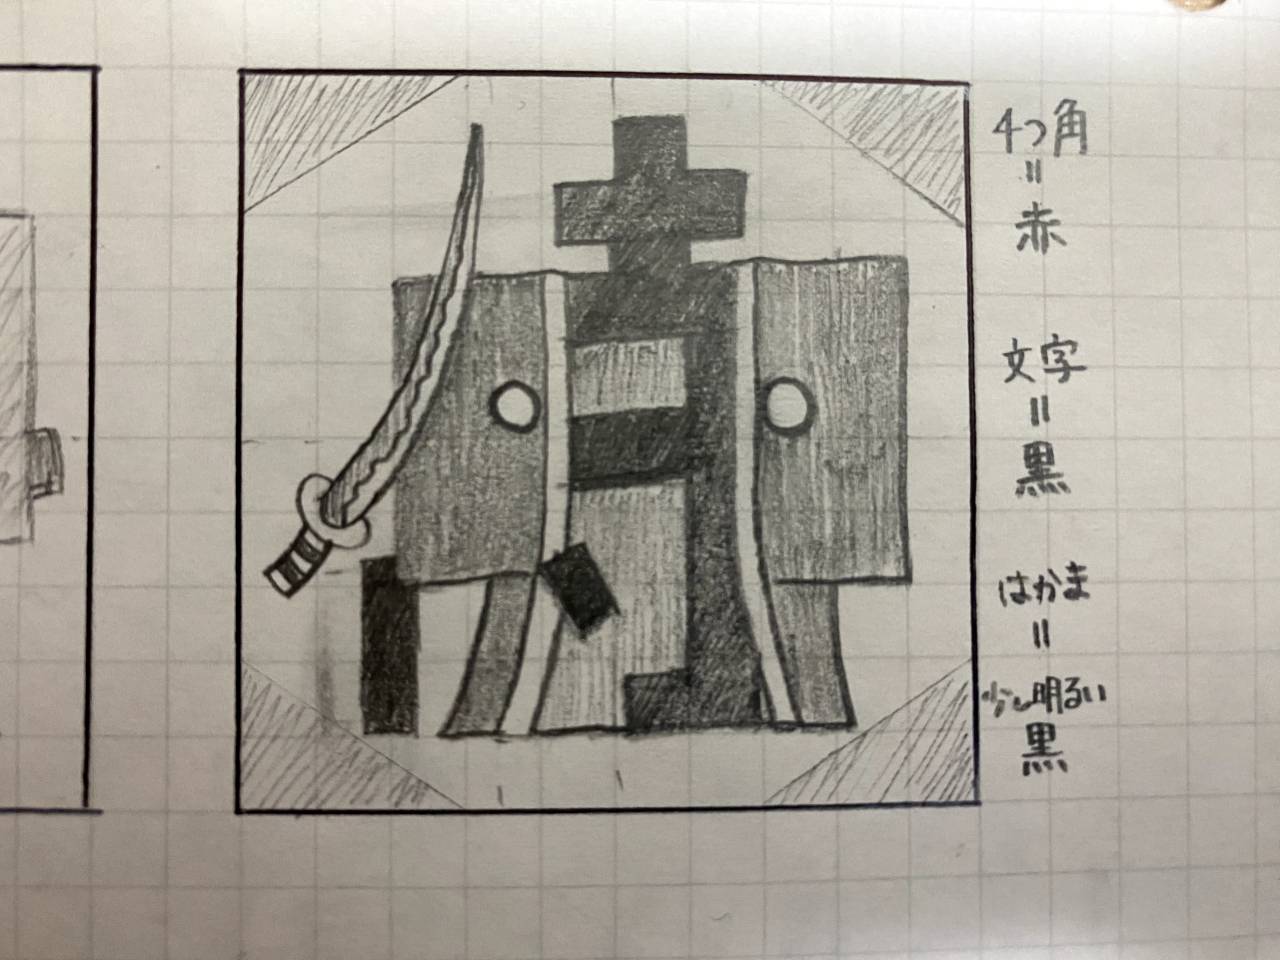 4つ角
=
赤
文字
=
黒
はかま
=
少し明るい
黒